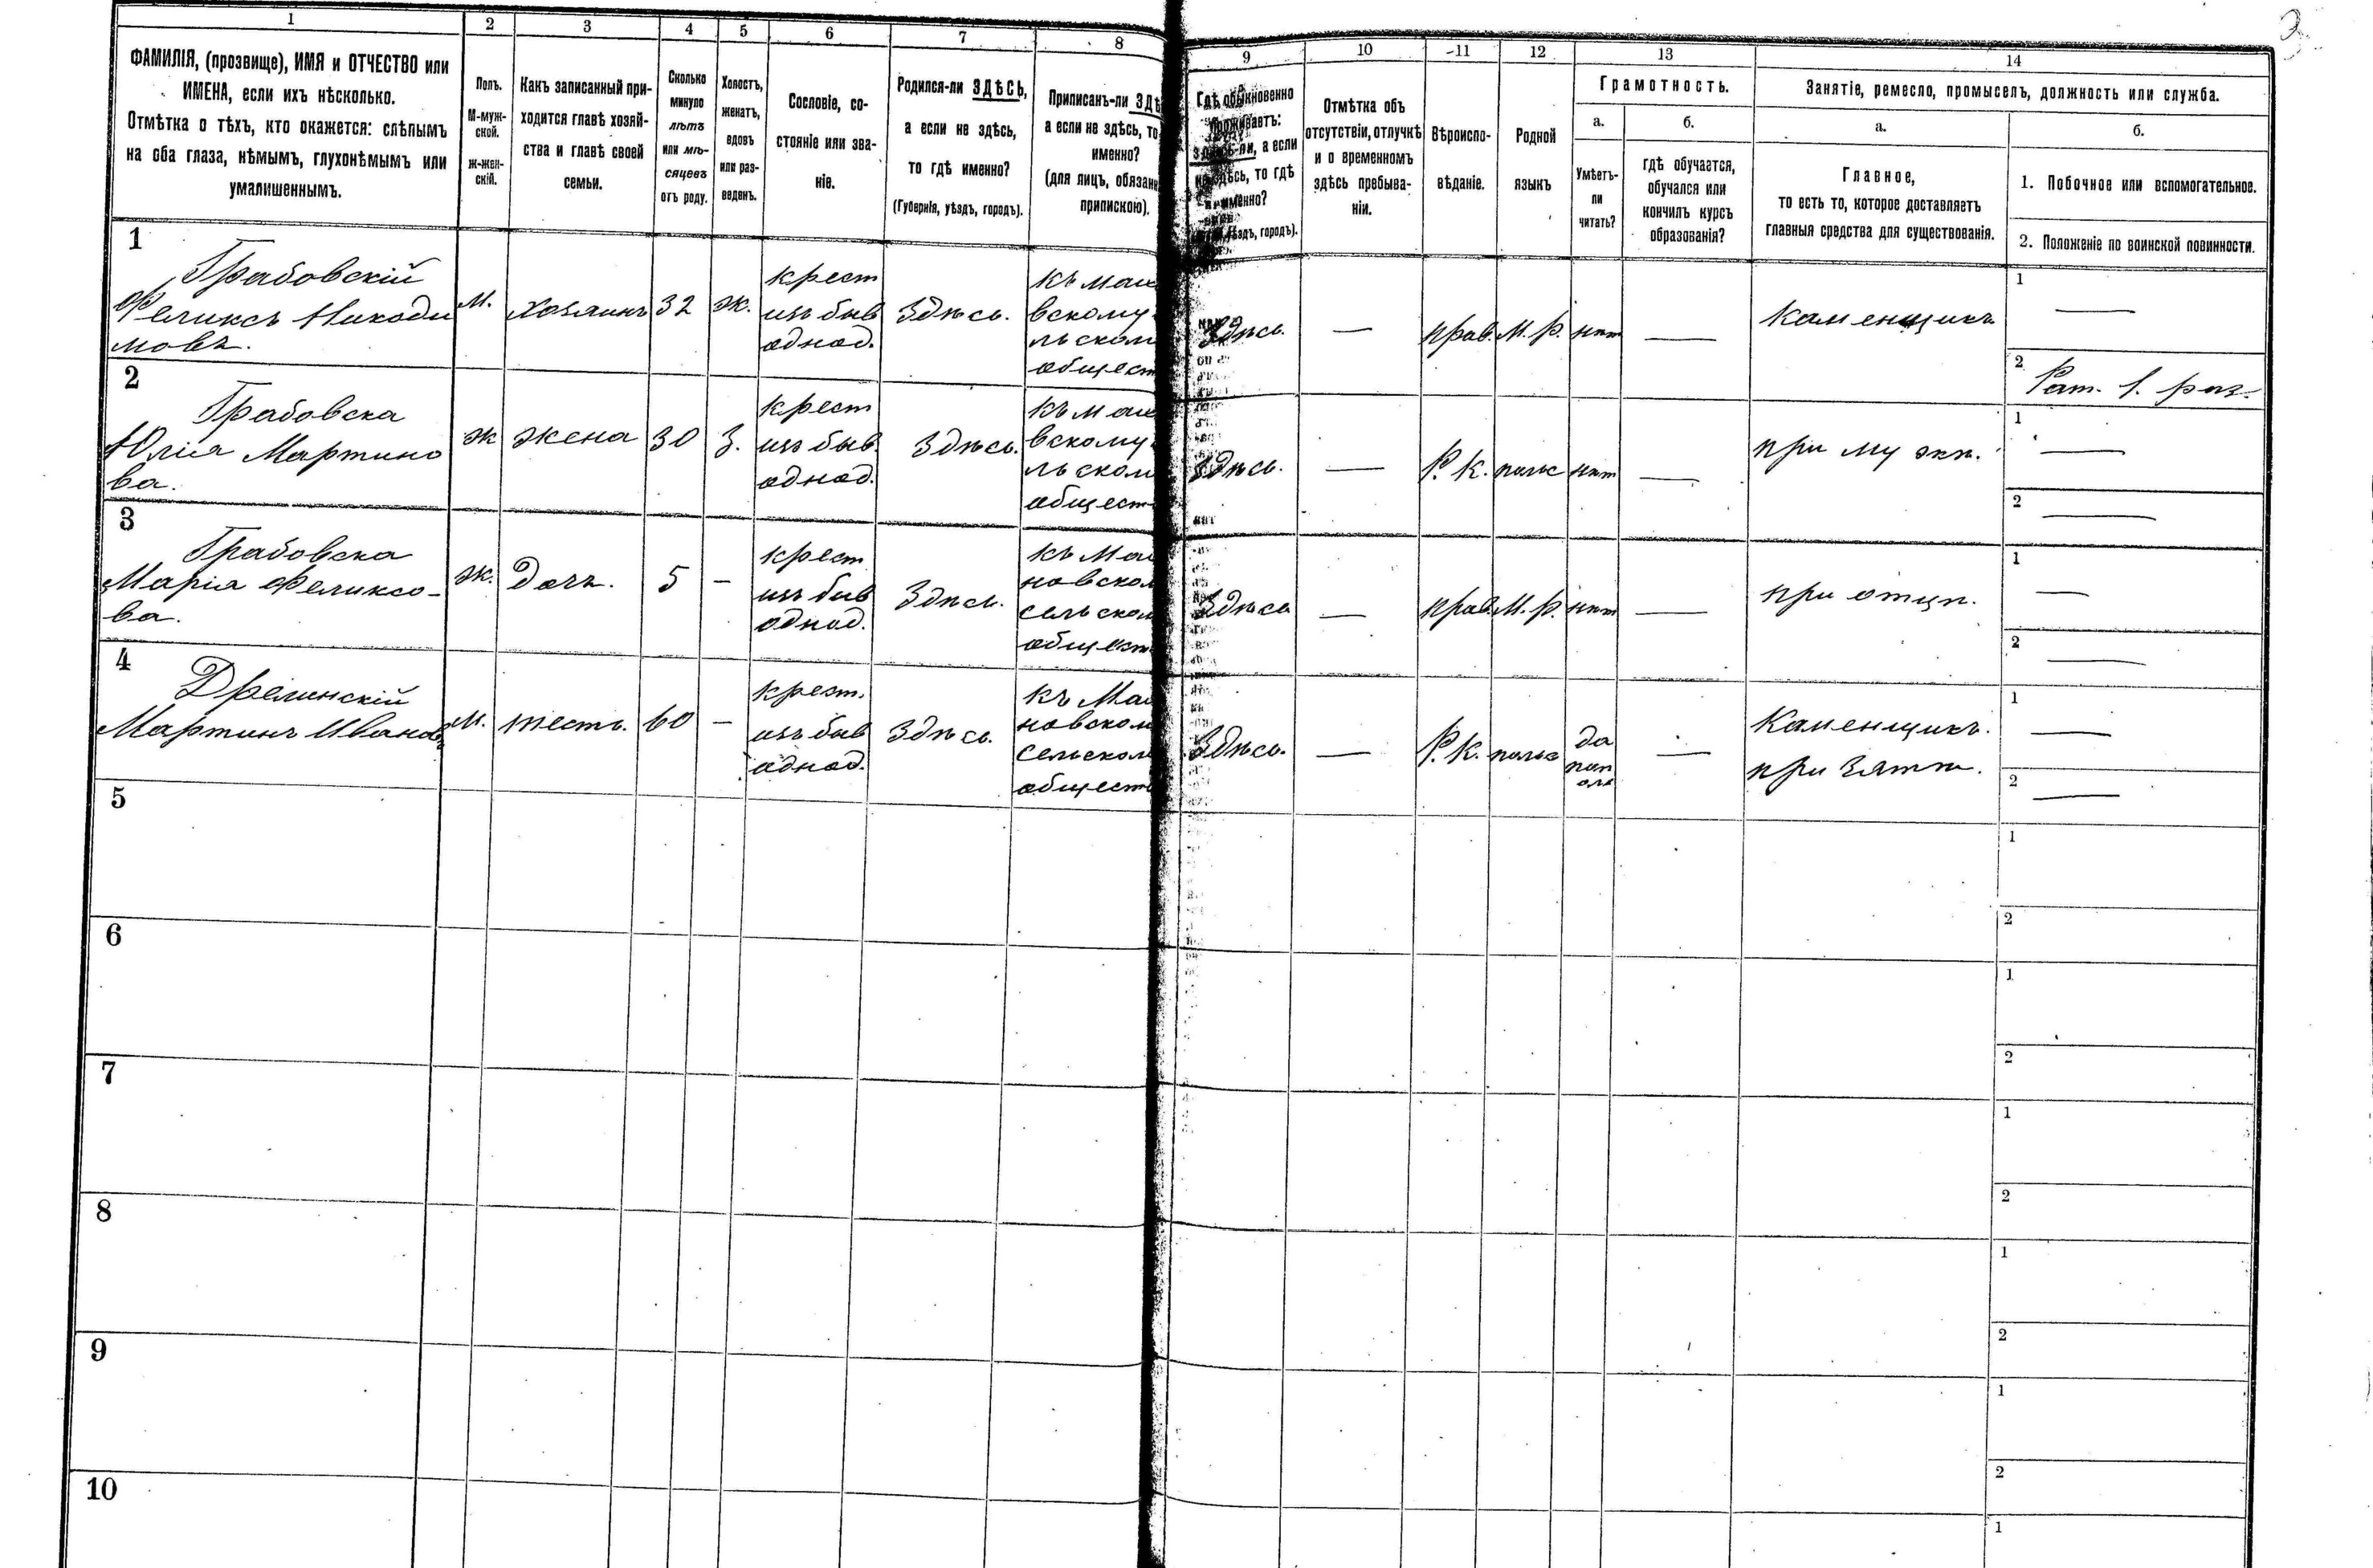 3
1 2 3 4 5 6 7 8 9 10 11 12 13 14
ФАМИЛІЯ, (прозвище), ИМЯ и ОТЧЕСТВО или
ИМЕНА, если ихъ нѣсколько.
Отмѣтка о тѣхъ, кто окажется: слѣпымъ
на оба глаза, нѣмымъ, глухонѣмымъ или
умалишеннымъ.
Полъ.
М-муж-
ской.
ж-жен-
скій.
Какъ записанный при-
ходится главѣ хозяй-
ства и главѣ своей
семьи.
Сколько
минуло
лѣтъ
или мѣ-
сяцевъ
отъ роду.
Холостъ,
женатъ,
вдовъ
или раз-
веденъ.
Сословіе, со-
стояніе или зва-
ніе.
Родился-ли ЗДѢСЬ,
а если не здѣсь,
то гдѣ именно?
(Губернія, уѣздъ, городъ).
Приписанъ-ли ЗДѢ
а если не здѣсь, то
именно?
(для лицъ, обязан
припискою).
Гдѣ обыкновенно
проживаетъ:
здѣсь-ли, а если
не здѣсь, то гдѣ
именно?
уѣздъ, городъ).
Отмѣтка объ
отсутствіи, отлучкѣ
и о временномъ
здѣсь пребыва-
ніи.
Вѣроиспо-
вѣданіе.
Родной
языкъ
Грамотность.
а.
Умѣетъ-
ли
читать?
б.
гдѣ обучается,
обучался или
кончилъ курсъ
образованія?
Занятіе, ремесло, промыселъ, должность или служба.
а.
Главное,
то есть то, которое доставляетъ
главныя средства для существованія.
б.
1. Побочное или вспомогательное.
2. Положеніе по воинской повинности.
1
Грабовскій
Феликсъ Никоди
мовъ.
М.
хозяинъ
32
ж.
крест
изъ быв
однод.
Здѣсь.
къ Мац
вскому
льском
общест
Здѣсь.
—
прав.
М. р.
нѣт
—
каменщикъ
1 —
2 Рат. 1. раз.
2
Грабовска
Юлія Мартино
ва.
ж
жена
30
З.
крест
изъ быв.
однод.
Здѣсь.
къ Мац
вскому
льском
общест
Здѣсь.
—
Р. К.
польс
нѣт
—
при му
1 —
2 —
3
Грабовска
Марія Феликсо-
ва.
ж.
Дочь.
5
—
крест
изъ быв
однод.
Здѣсь.
къ Мац
новском
сельском
общест
Здѣсь
—
прав.
М. р.
нѣт
—
при отцѣ.
1 —
2 —
4
Дрелинскій
Мартинъ Иванов
М.
тесть.
60
—
крест.
изъ быв
однод.
Здѣсь.
къ Мац
новском
сельском
общест
Здѣсь.
—
Р. К.
польс
да
—
Каменщикъ.
при Зятѣ.
1 —
2 —
5
1
2
6
1
2
7
1
2
8
1
2
9
1
2
10
1